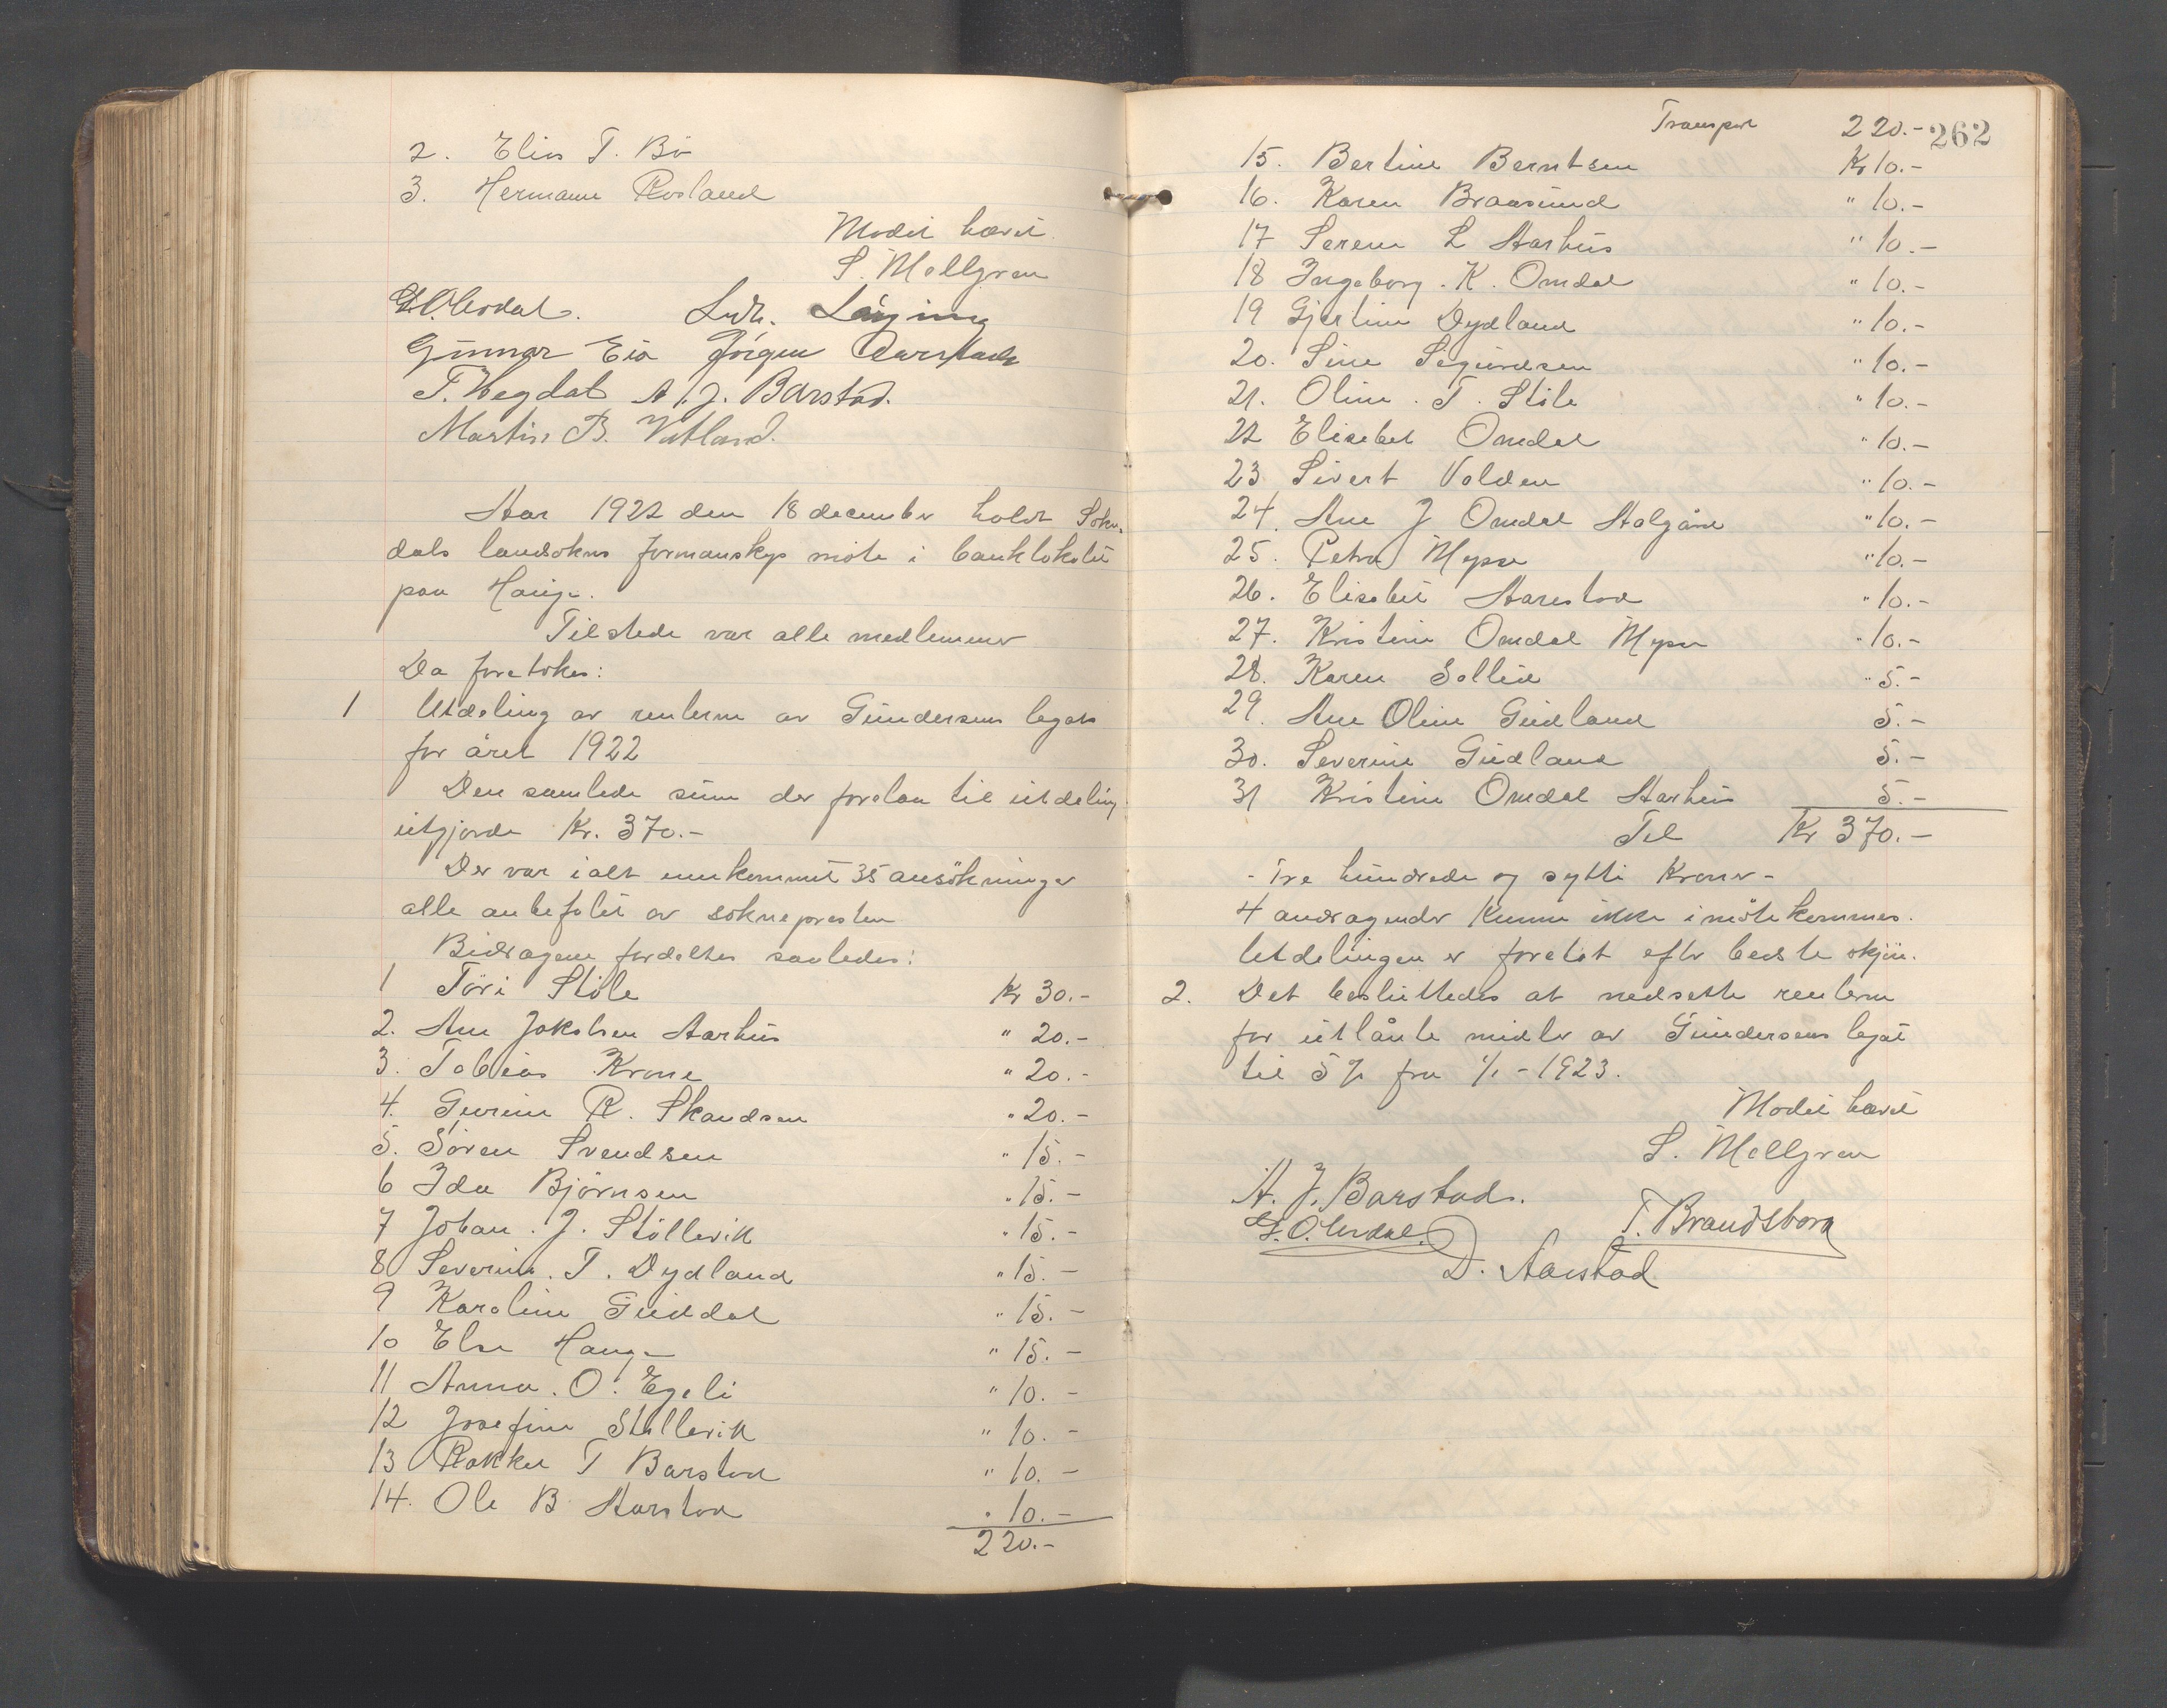 2. Elias T. Bö
3. Hermann Rosland
Mödet hævet.
S. Mellgren
Ludv. Löyning
Gunnar Eia Jörgen Aarstad
T. Hegdal A. J. Barstad.
Martin B. Vatland.
Aar 1922 den 18 december holdt Sokn-
dals landsokns formanskap möte i banklokalet
paa Hauge.
Tilstede var alle medlemmer
Da foretokes:
1 Utdeling av renterne av Gundersens legat
for året 1922
Den samlede sum der forelaa til utdeling
utgjorde Kr. 370.-
Der var ialt innkommet 35 ansökninger
alle anbefalet av soknepresten
Bidragene fordeltes saaledes:
1 Töri Stöle Kr 30.-
2. Ane Jakobsen Aarhus " 20.-
3. Tobias Krone " 20.-
4. Gurine R. Skandsen " 20.-
5. Sören Svendsen " 15.-
6 Ida Björnsen " 15.-
7 Johan. J. Stöllevik " 15.-
8 Severine. T. Dydland " 15.-
9 Karoline Guddal " 15.-
10 Else Hauge " 15.-
11 Anna. O. Egeli " 10.-
12 Josefine Stöllevik " 10.-
13 Rakkel T Barstad " 10.-
14. Ole B Aarstad " 10.-
220.-
Transport 220.- 262
15. Bertine Berntsen Kr 10.-
16. Karen Braasund " 10.-
17 Serene L Aarhus " 10.-
18 Ingeborg. K. Omdal " 10.-
19 Gjertine Dydland " 10.-
20. Sine Sigurdsen " 10.-
21. Oline. T. Stöle " 10.-
22 Elisabet Omdal " 10.-
23 Sivert Valden " 10.-
24. Ane J Omdal Aalgård " 10.-
25. Petra Mysse " 10.-
26. Elisabet Aarestad " 10.-
27. Kristine Omdal Mysse " 10.-
28. Karen Sollid " 5.-
29. Ane Oline Gudland 5.-
30. Severine Gudland 5.-
31 Kristine Omdal Aarhus 5.-
Til Kr 370.-
- Tre hundrede og sytti Kroner -
4 andragender kunne ikke imötekommes.
Utdelingen er foretat efter bedste skjön.
2. Det besluttedes at nedsette renterne
for utlånte midler av Gundersens legat
til 5 % fra 1/1 - 1923.
Mödet hævet
S. Mellgren
A. J. Barstad.
T. Brandsberg
D. Aarstad